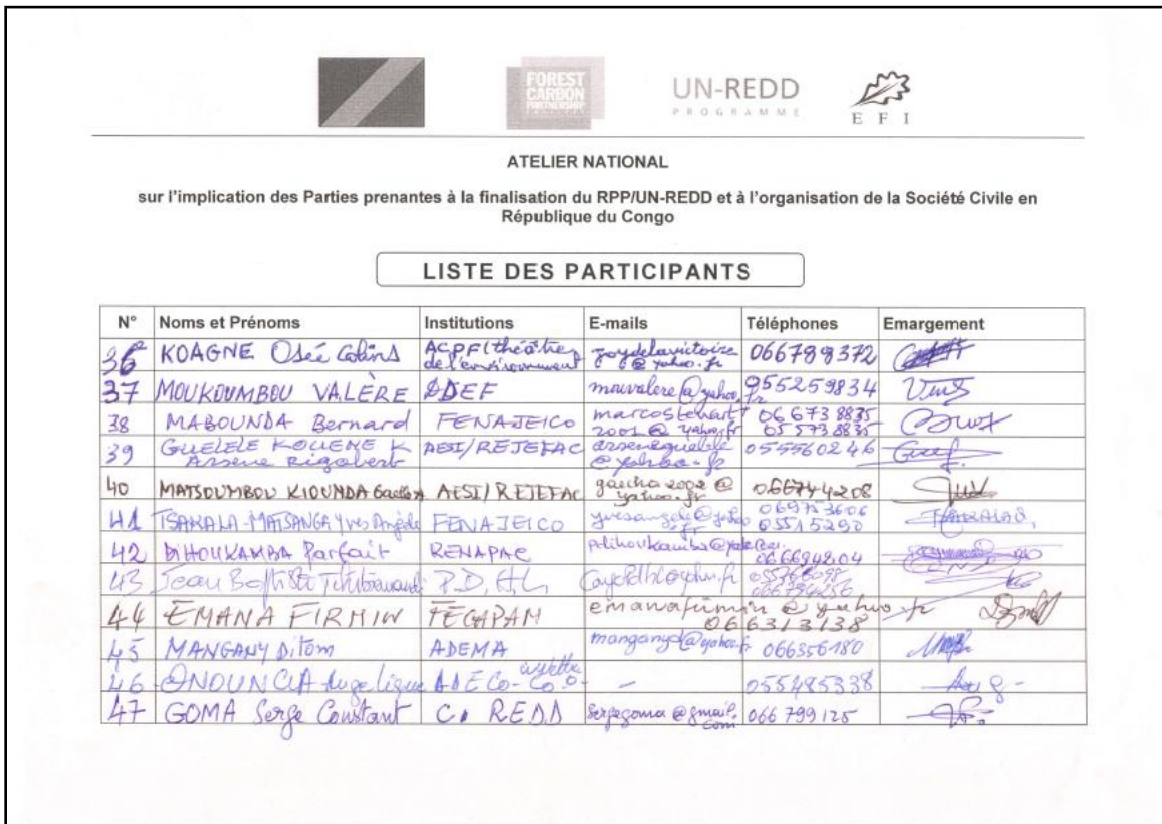 FOREST
CARBON
PARTNERSHIP
UN-REDD
PROGRAMME
EFI
ATELIER NATIONAL
sur l'implication des Parties prenantes à la finalisation du RPP/UN-REDD et à l'organisation de la Société Civile en
République du Congo
LISTE DES PARTICIPANTS
N° Noms et Prénoms Institutions E-mails Téléphones Emargement
36 KOAGNE Osée Colins ACPF (théâtre de l'environnement joydelavictoire @ yahoo.fr 066789372
37 MOUKOUMBOU VALÈRE ADEF mouvalere@yahoo.fr 055259834
38 MABOUNDA Bernard FENAJEICO 2001 @ yahoo.fr 066738835 055738835
39 GUELELE KOUENE K Arsène Rigobert AESI/REJEFAC arseneguelele @ yahoo.fr 055560246
40 MATSOUMBOU KIOUNDA AESI/REJEFAC gaecha2002 @ yahoo.fr 066744208
41 TSAKALA-MATSANGA Yves Angèle FENAJEICO 069753606 05515290
42 DIHOUKAMBA Parfait RENAPAC 066694204
43 Jean Baptiste
44 EMANA FIRMIN FECAPAM emanafirmin @ yahoo.fr 066313138
45 MANGANY Ditom ADEMA manganyd@yahoo.fr 066356180
46 Angelique ADECO - 055485338
47 GOMA Serge Constant C. REDD sergegoma @ gmail.com 066 799 125